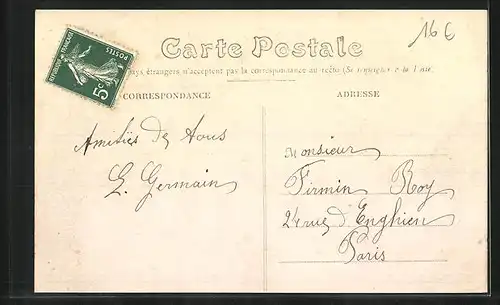 16 €
Carte Postale
pays étrangers n'acceptent pas la correspondance au recto (Se renseigner à la Poste
CORRESPONDANCE
ADRESSE
REPUBLIQUE FRANÇAISE
POSTES
5c
Amitiés de tous
L. Germain
Monsieur
Firmin Roy
24 rue d'Enghien
Paris